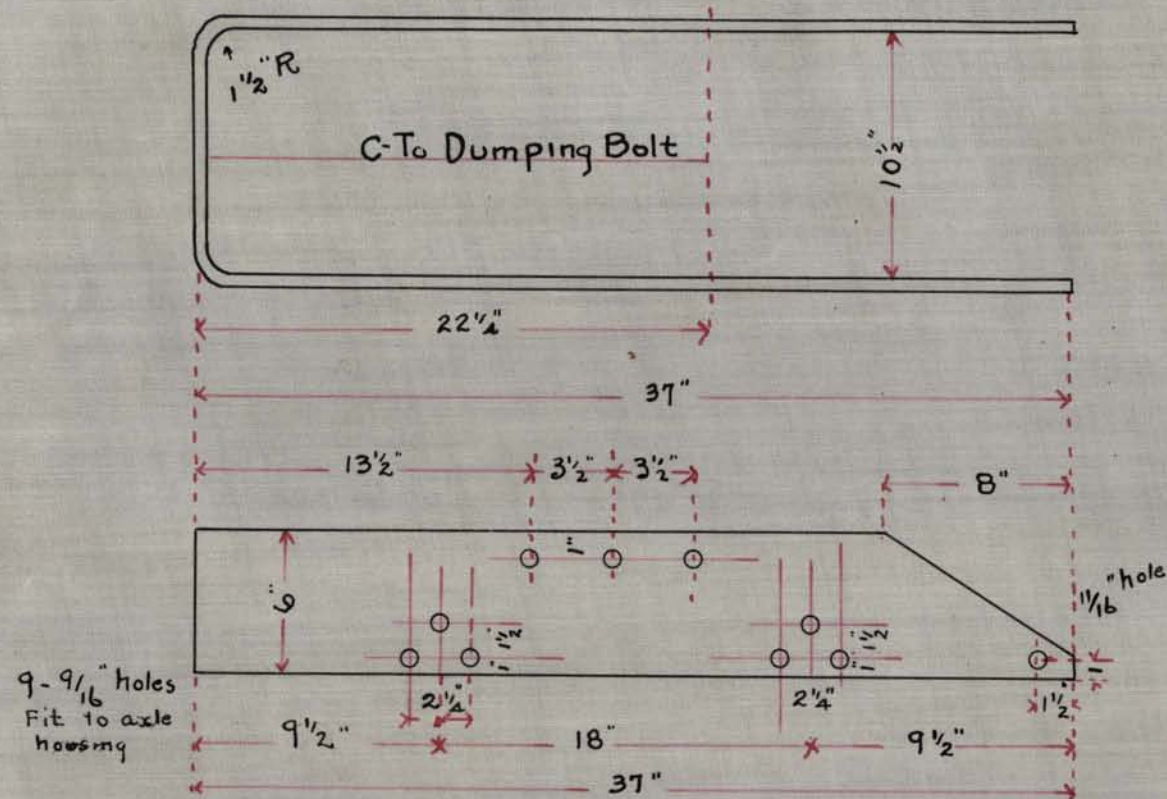 1 1/2" R
C-To Dumping Bolt
10 1/2"
22 1/4"
37"
13 1/2"
3 1/2"
3 1/2"
8"
1"
6"
11/16" hole
1 1/2
1"
1 1/2
1"
1"
9 - 9/16" holes
Fit to axle
housing
2 1/4"
2 1/4"
1 1/2"
9 1/2"
18"
9 1/2"
37"